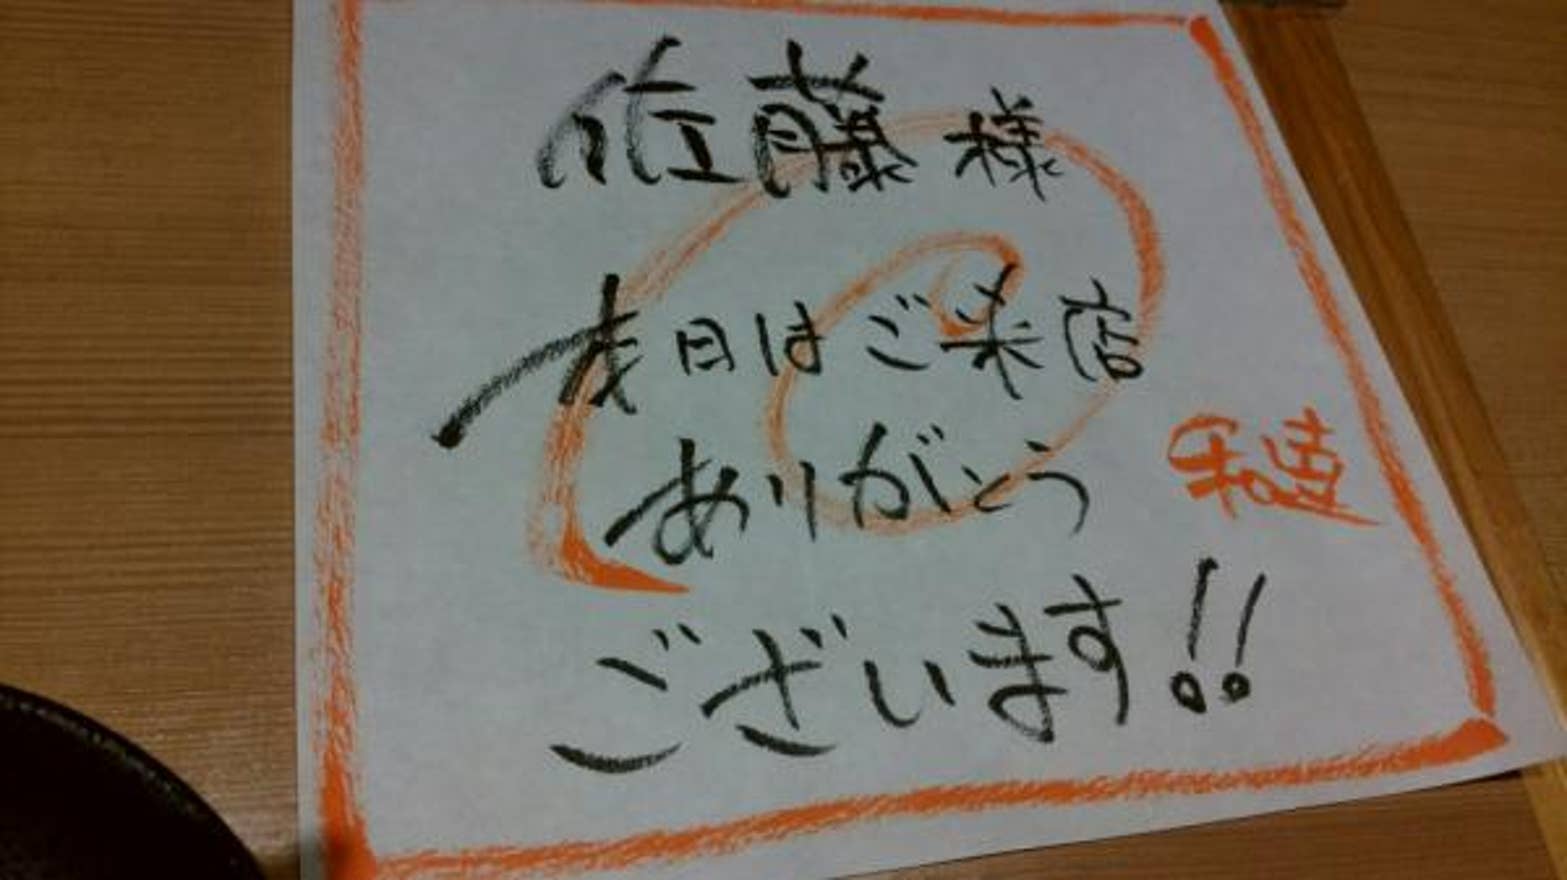 佐藤様
本日はご来店
ありがとう
ございます!!